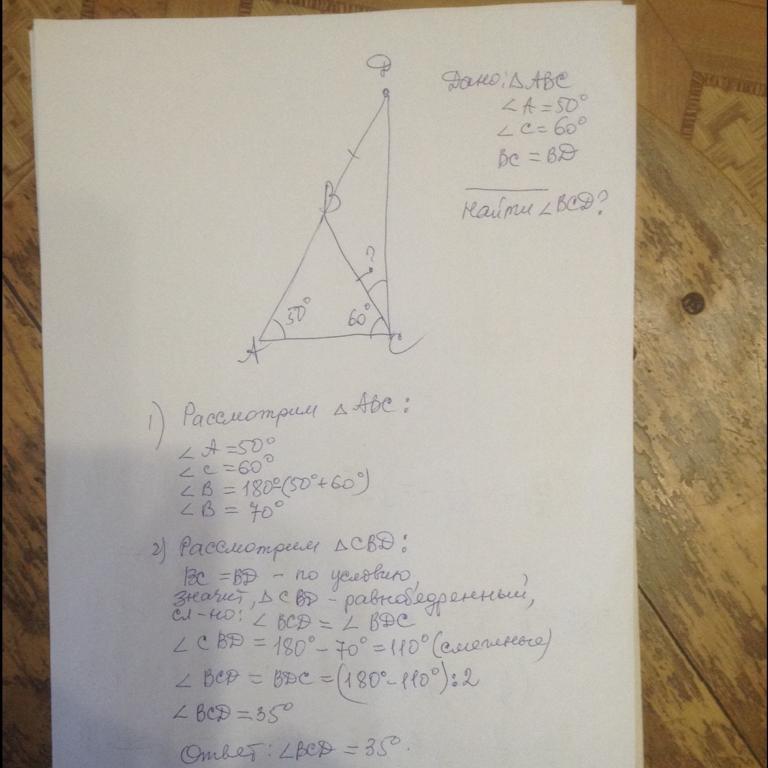 D
Дано: △ABC
∠A = 50°
∠C = 60°
BC = BD
Найти ∠BCD?
B
?
50°
60°
A
C
1) Рассмотрим △ABC:
∠A = 50°
∠C = 60°
∠B = 180°-(50°+60°)
∠B = 70°
2) Рассмотрим △CBD:
BC = BD - по условию,
значит, △CBD - равнобедренный,
сл-но: ∠BCD = ∠BDC
∠CBD = 180° - 70° = 110° (смежные)
∠BCD = BDC = (180° - 110°):2
∠BCD = 35°
Ответ: ∠BCD = 35°.